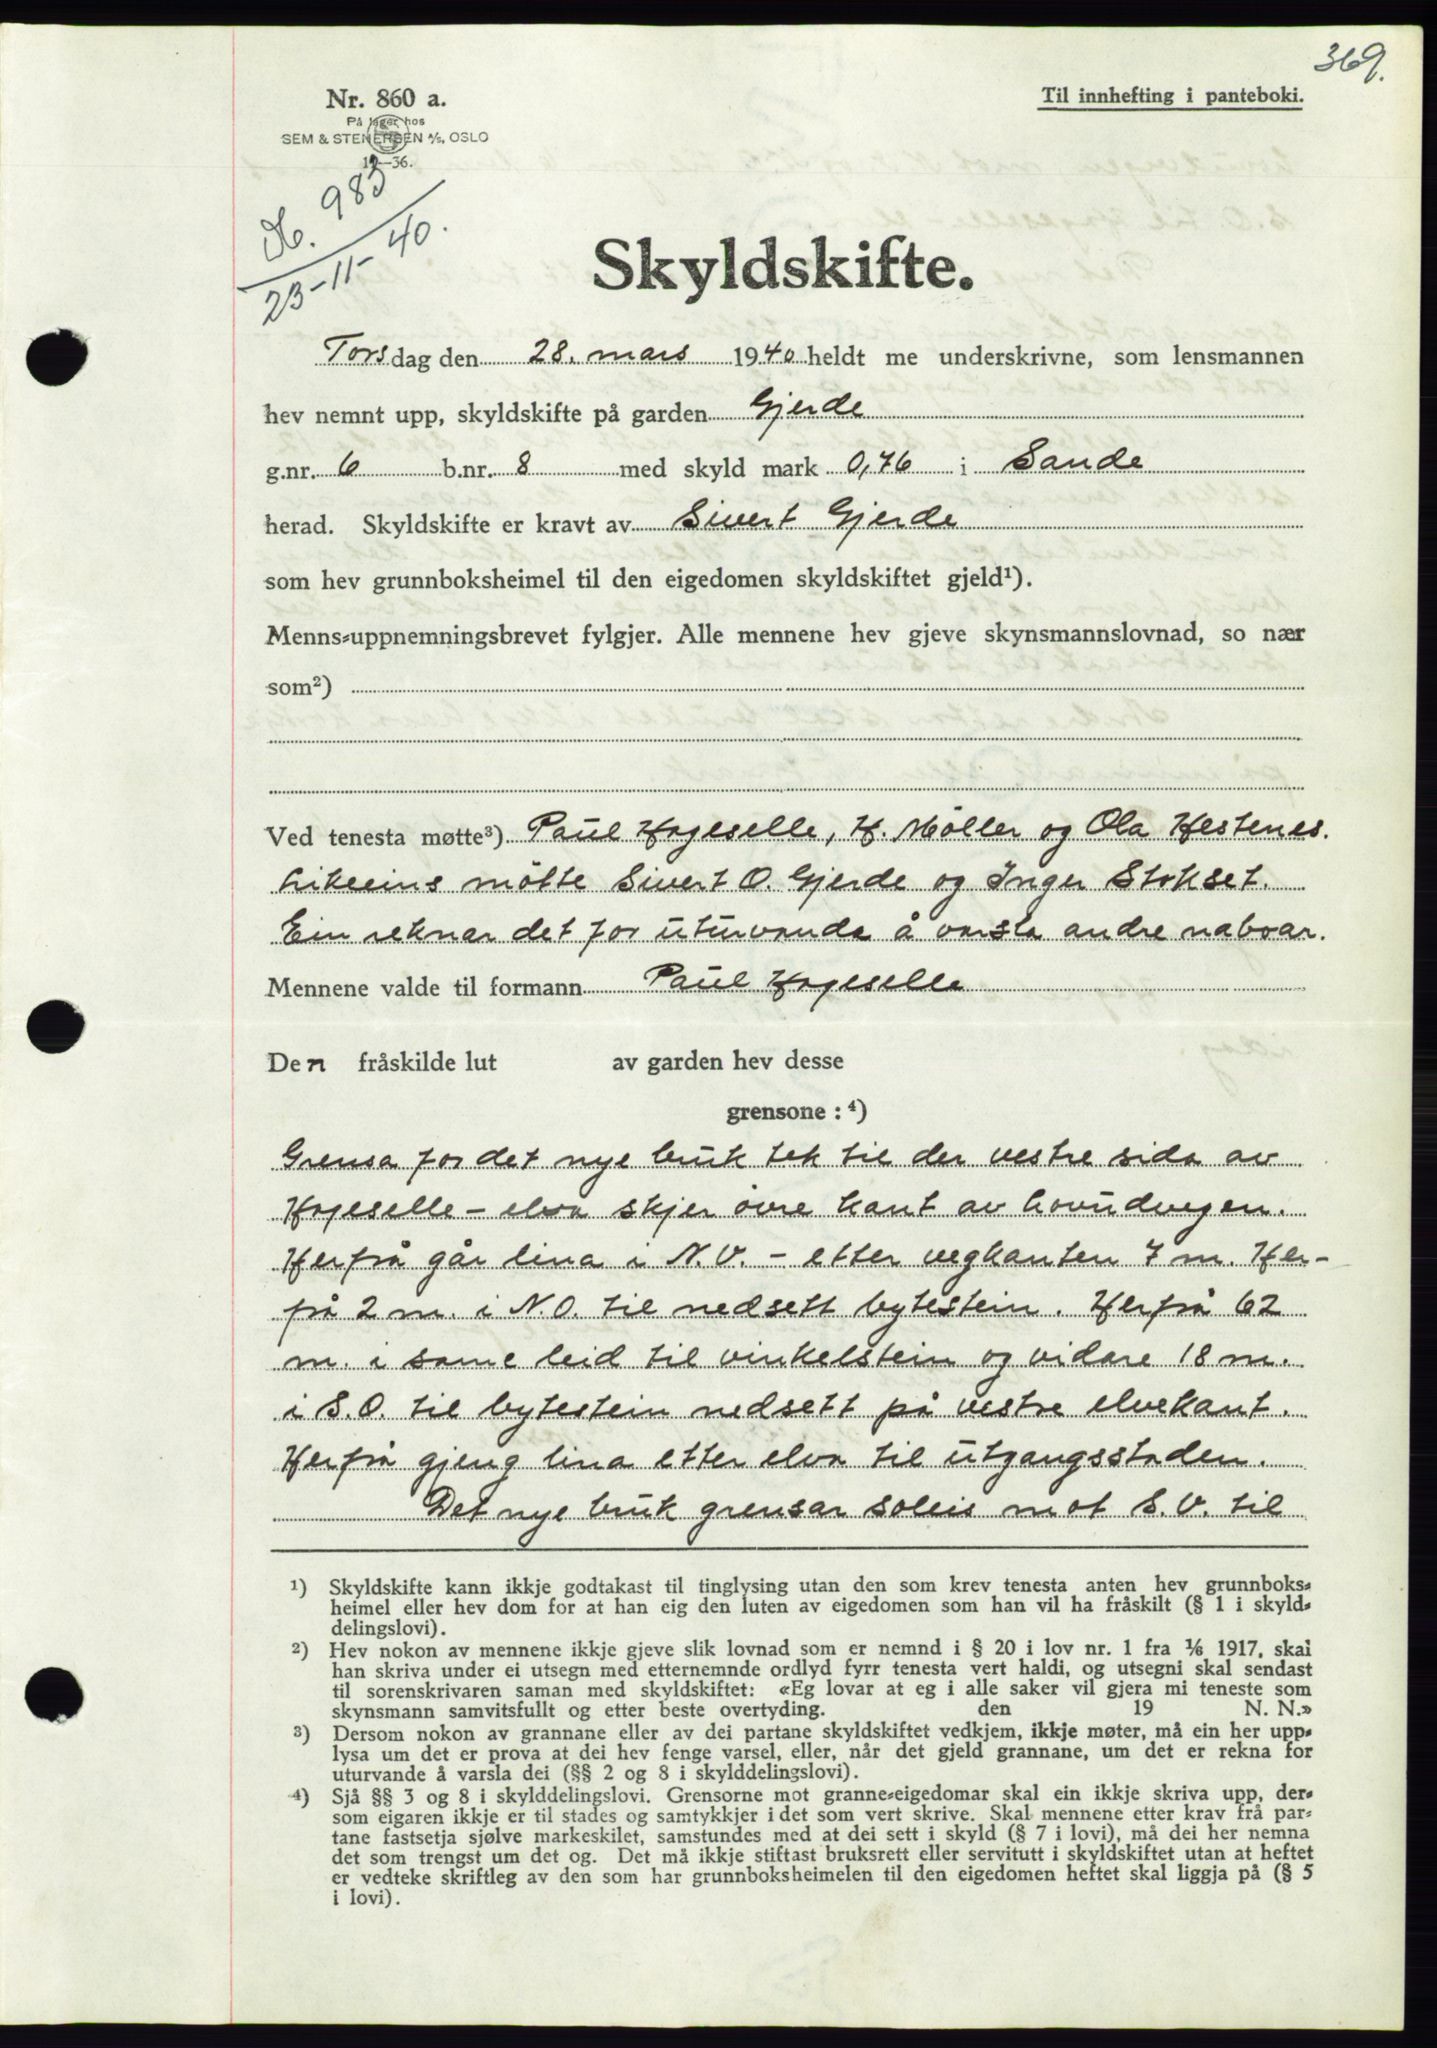 369.
Nr. 860 a.
Til innhefting i panteboki.
På lager hos
SEM & STENERSEN A/S, OSLO
12—36.
983
23-11-40.
Skyldskifte.
Torsdag den 28. mars 1940 heldt me underskrivne, som lensmannen
hev nemnt upp, skyldskifte på garden Gjerde
g.nr. 6 b.nr. 8 med skyld mark 0,76 i Sande
herad. Skyldskifte er kravt av Sivert Gjerde
som hev grunnboksheimel til den eigedomen skyldskiftet gjeld¹).
Menns-uppnemningsbrevet fylgjer. Alle mennene hev gjeve skynsmannslovnad, so nær
som²)
Ved tenesta møtte³) Paul Hageselle, H. Møller og Ola Hestenes.
Likeeins møtte Sivert O. Gjerde og Inger Stokset.
Ein reknar det for uturvande å varsla andre naboar.
Mennene valde til formann Paul Hageselle
Den fråskilde lut av garden hev desse
grensone : ⁴)
Grensa for det nye bruk tek til der vestre sida av
Hageselle - elva skjer øvre kant av hovudvegen.
Herfrå går lina i N.V. - etter vegkanten 7 m. Her-
frå 2 m. i N.O. til nedsett bytestein. Herfrå 62
m. i same leid til vinkelstein og vidare 18 m.
i S.O. til bytestein nedsett på vestre elvekant.
Herfrå gjeng lina etter elva til utgangsstaden.
Det nye bruk grensar soleis mot S.V. til
¹) Skyldskifte kann ikkje godtakast til tinglysing utan den som krev tenesta anten hev grunnboks-
heimel eller hev dom for at han eig den luten av eigedomen som han vil ha fråskilt (§ 1 i skyld-
delingslovi).
²) Hev nokon av mennene ikkje gjeve slik lovnad som er nemnd i § 20 i lov nr. 1 fra 1/6 1917, skal
han skriva under ei utsegn med etternemnde ordlyd fyrr tenesta vert haldi, og utsegni skal sendast
til sorenskrivaren saman med skyldskiftet: «Eg lovar at eg i alle saker vil gjera mi teneste som
skynsmann samvitsfullt og etter beste overtyding. den 19 N. N.»
³) Dersom nokon av grannane eller av dei partane skyldskiftet vedkjem, ikkje møter, må ein her upp-
lysa um det er prova at dei hev fenge varsel, eller, når det gjeld grannane, um det er rekna for
uturvande å varsla dei (§§ 2 og 8 i skylddelingslovi).
⁴) Sjå §§ 3 og 8 i skylddelingslovi. Grensorne mot granne-eigedomar skal ein ikkje skriva upp, der-
som eigaren ikkje er til stades og samtykkjer i det som vert skrive. Skal mennene etter krav frå par-
tane fastsetja sjølve markeskilet, samstundes med at dei sett i skyld (§ 7 i lovi), må dei her nemna
det som trengst um det og. Det må ikkje stiftast bruksrett eller servitutt i skyldskiftet utan at heftet
er vedteke skriftleg av den som har grunnboksheimelen til den eigedomen heftet skal liggja på (§ 5
i lovi).